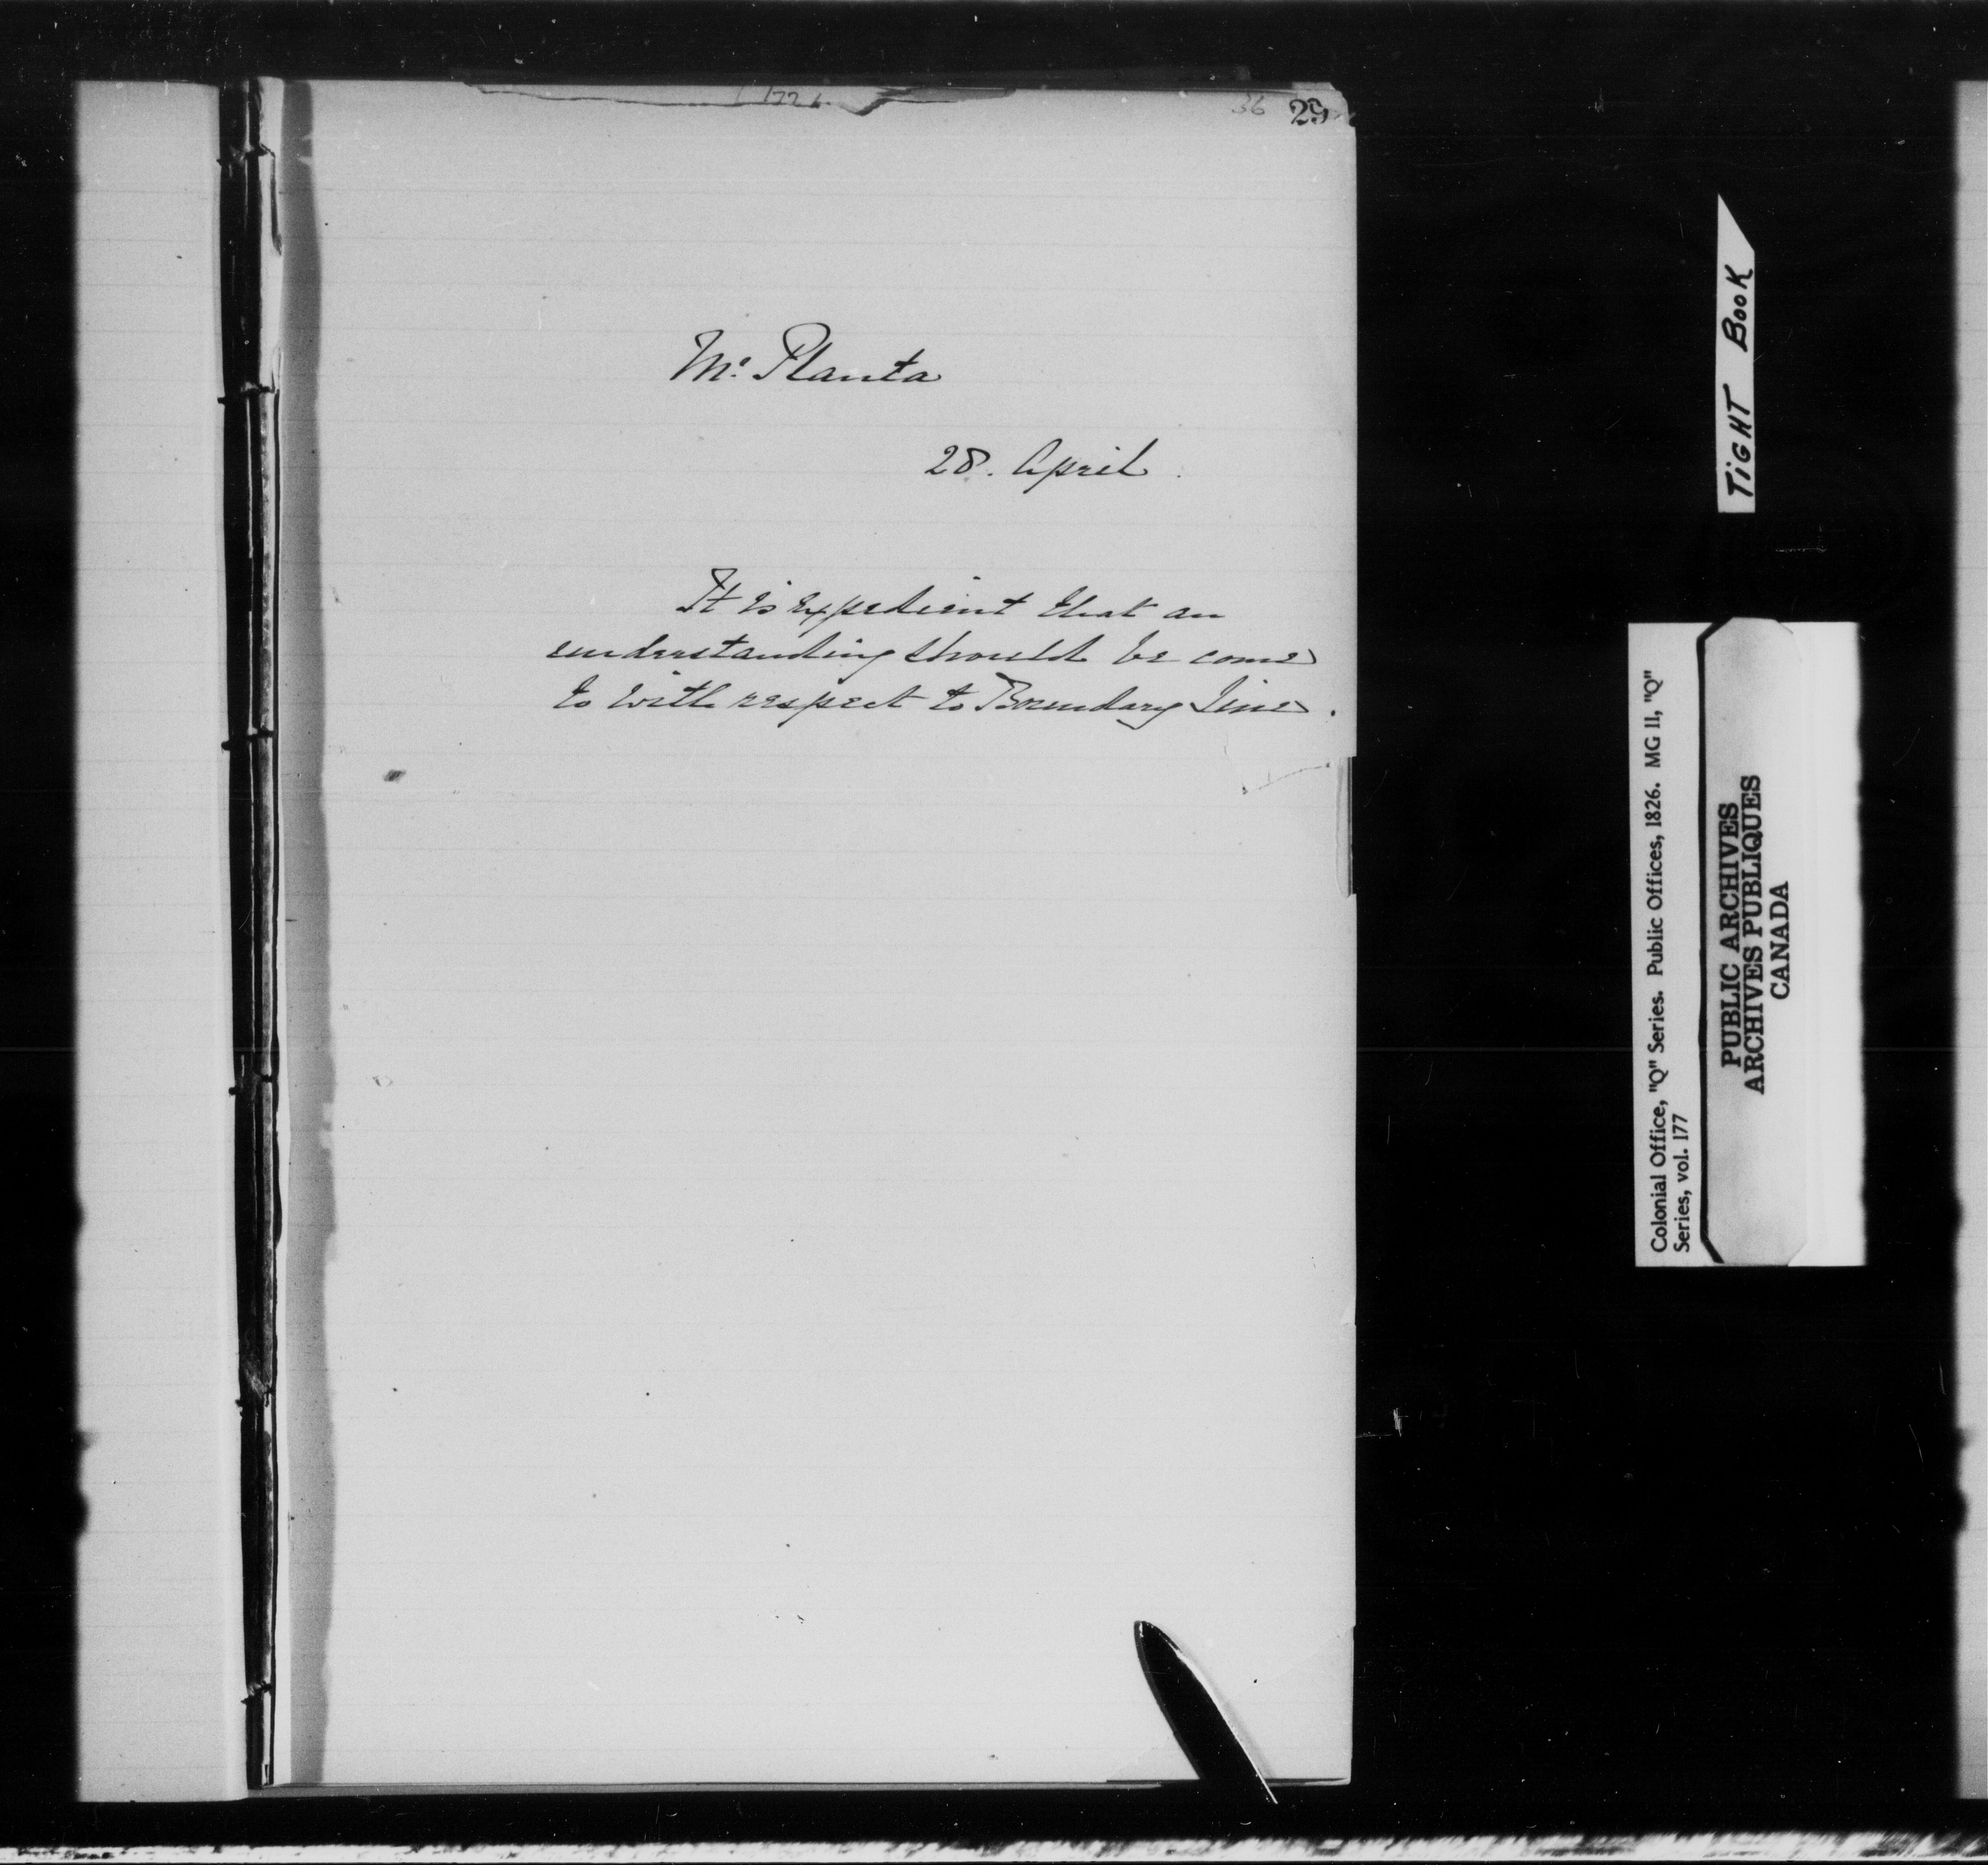 36 29
Mr. Planta
28. April.
It is expedient that an
understanding should be come
to with respect to Boundary Line.
TIGHT BOOK
Colonial Office, "Q" Series. Public Offices, 1826. MG 11, "Q"
Series, vol. 177
PUBLIC ARCHIVES
ARCHIVES PUBLIQUES
CANADA